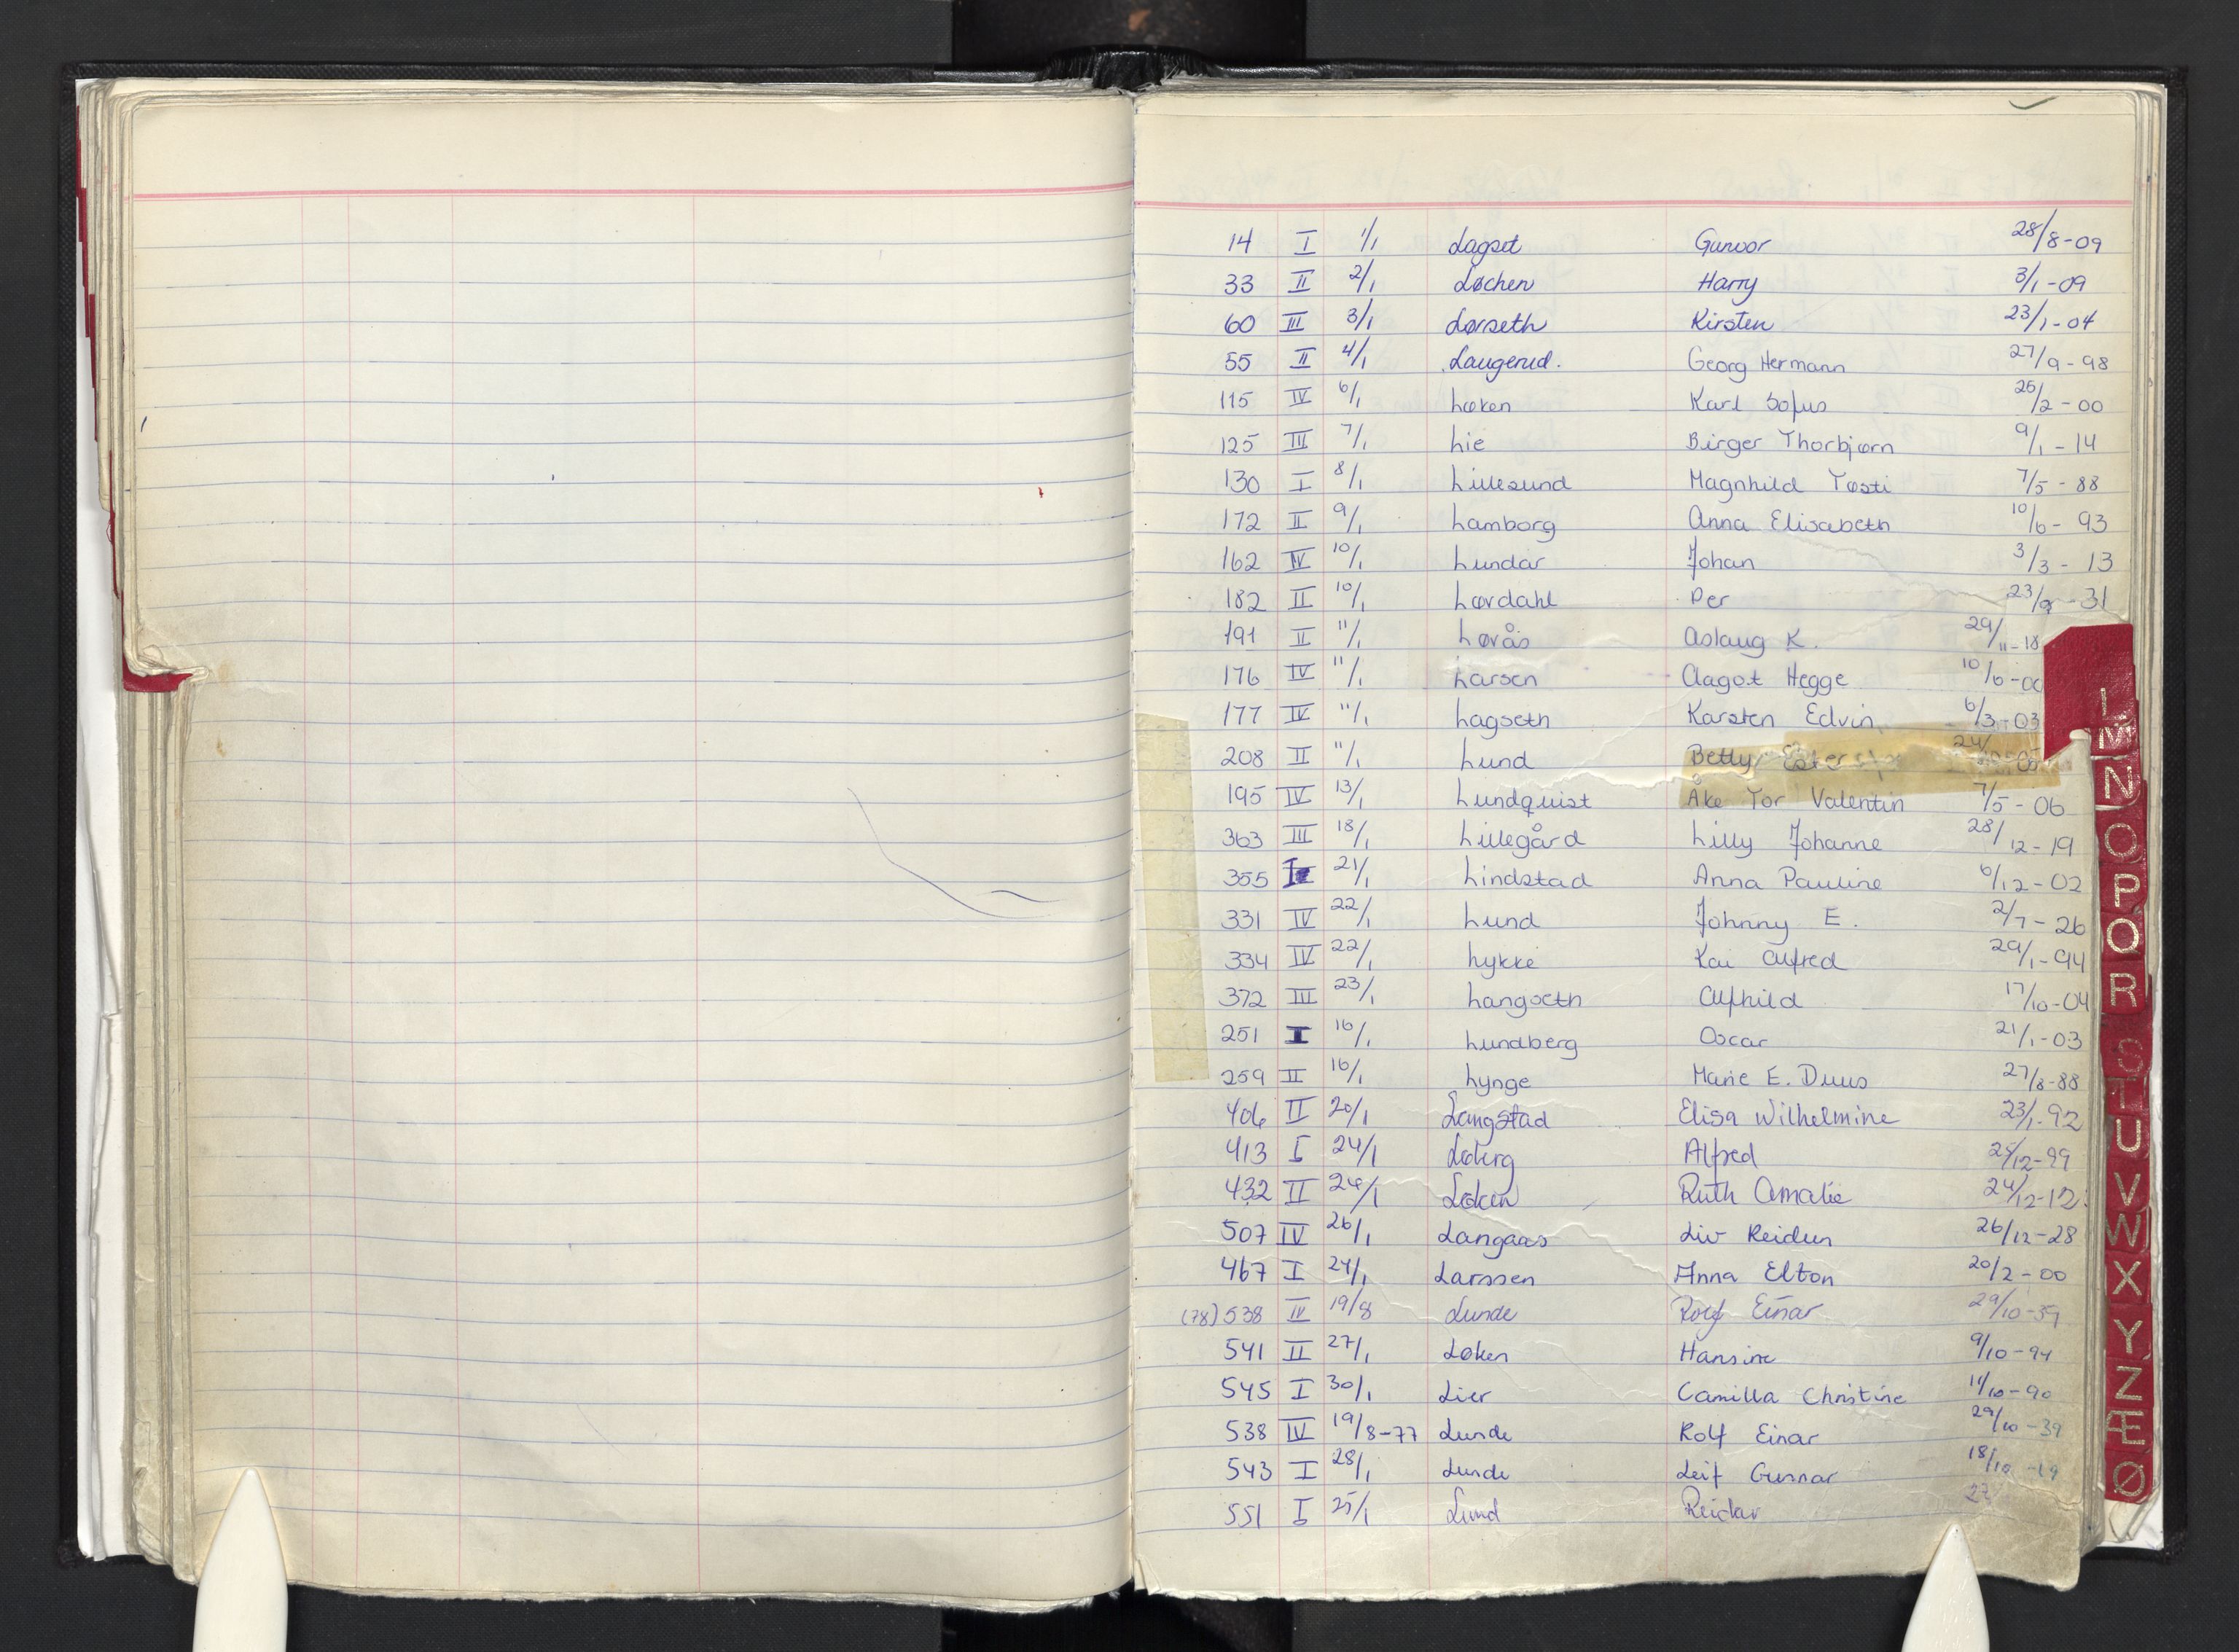 14 I 1/1 Lagset Gunvor 28/8-09
33 II 2/1 Løchen Harry 3/1-09
60 III 3/1 Lørseth Kirsten 23/1-04
55 II 4/1 Laugerud. Georg Hermann 27/9-98
115 IV 6/1 Løken Karl Sofus 26/2-00
125 III 7/1 Lie Birger Thorbjørn 9/1-14
130 I 8/1 Lillesund Magnhild Tosti 7/5-88
172 II 9/1 Lamborg Anna Elisabeth 10/6-93
162 IV 10/1 Lundar Johan 3/3-13
182 II 10/1 Lørdahl Per 23/9-31
191 II 11/1 Løvås Aslaug K. 29/11-18
176 IV 11/1 Larsen Aagot Hegge 10/6-00
177 IV 11/1 Lagseth Karsten Edvin 6/3-03
208 II 11/1 Lund Betty
195 IV 13/1 Lundquist Åke Tor Valentin 7/5-06
363 III 18/1 Lillegård Lilly Johanne 28/12-19
355 I 21/1 Lindstad Anna Pauline 6/12-02
331 IV 22/1 Lund Johnny E. 2/7-26
334 IV 22/1 Lykke Kai Alfred 29/1-94
372 III 23/1 Langseth Alfhild 17/10-04
251 I 16/1 Lundberg Oscar 21/1-03
259 II 16/1 Lynge Marie E. Duus 27/8-88
406 II 20/1 Langstad Elisa Wilhelmine 23/1-92
413 I 24/1 Løberg Alfred 25/12-99
432 II 24/1 Løken Ruth Amalie 24/12-12
507 IV 26/1 Langaas Liv Reidun 26/12-28
467 I 24/1 Larssen Anna Elton 20/2-00
(78) 538 IV 19/8 Lunde Rolf Einar 29/10-39
541 II 27/1 Løken Hansine 9/10-94
545 I 30/1 Lier Camilla Christine 11/10-90
538 IV 19/8-77 Lunde Rolf Einar 29/10-39
543 I 28/1 Lunde Leif Gunnar 18/10-19
551 I 25/1 Lund Reidar
L
M
N
O
P
Q
R
S
T
U
V
W
X
Y
Z
Æ
Ø